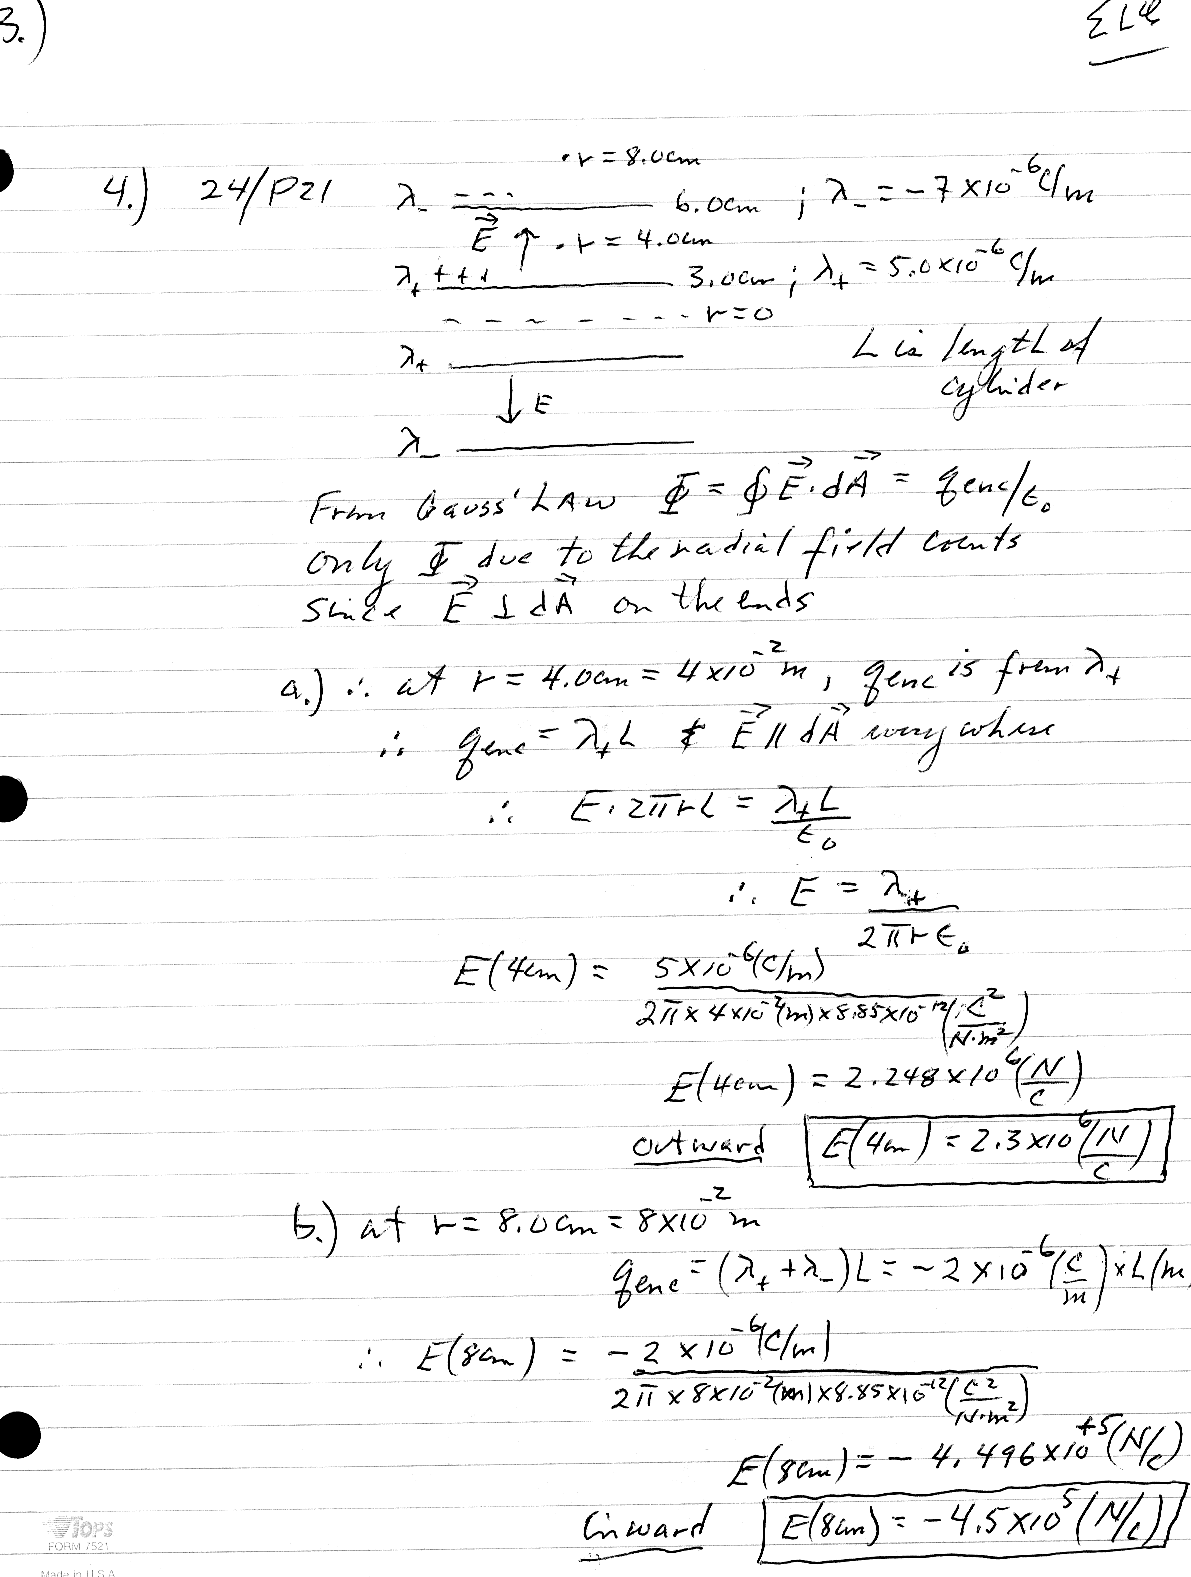 3.)
4.) 24/P21
· r = 8.0cm
λ₋ - - - 6.0cm ; λ₋ = -7×10⁻⁶ C/m
E⃗ ↑ · r = 4.0cm
λ₊ + + + 3.0cm ; λ₊ = 5.0×10⁻⁶ C/m
- - - - - - - r=0
λ₊ L is length of
cylinder
↓ E
λ₋
From Gauss' LAW Φ = ∮ E⃗·dA⃗ = qenc/ε₀
only Φ due to the radial field counts
since E⃗ ⊥ dA⃗ on the ends
a.) ∴ at r = 4.0cm = 4×10⁻² m, qenc is from λ₊
∴ qenc = λ₊L & E⃗ ∥ dA⃗ everywhere
∴ E·2πrL = λ₊L / ε₀
∴ E = λ₊ / 2πrε₀
E(4cm) = 5×10⁻⁶(C/m) / 2π×4×10⁻²(m)×8.85×10⁻¹²(C²/N·m²)
E(4cm) = 2.248×10⁶(N/C)
outward E(4cm) = 2.3×10⁶(N/C)
b.) at r = 8.0cm = 8×10⁻² m
qenc = (λ₊+λ₋)L = -2×10⁻⁶(C/m)×L(m
∴ E(8cm) = -2×10⁻⁶(C/m) / 2π×8×10⁻²(m)×8.85×10⁻¹²(C²/N·m²)
E(8cm) = -4.496×10⁺⁵(N/C)
inward E(8cm) = -4.5×10⁵(N/C)
TOPS
FORM 7521
Made in U.S.A.